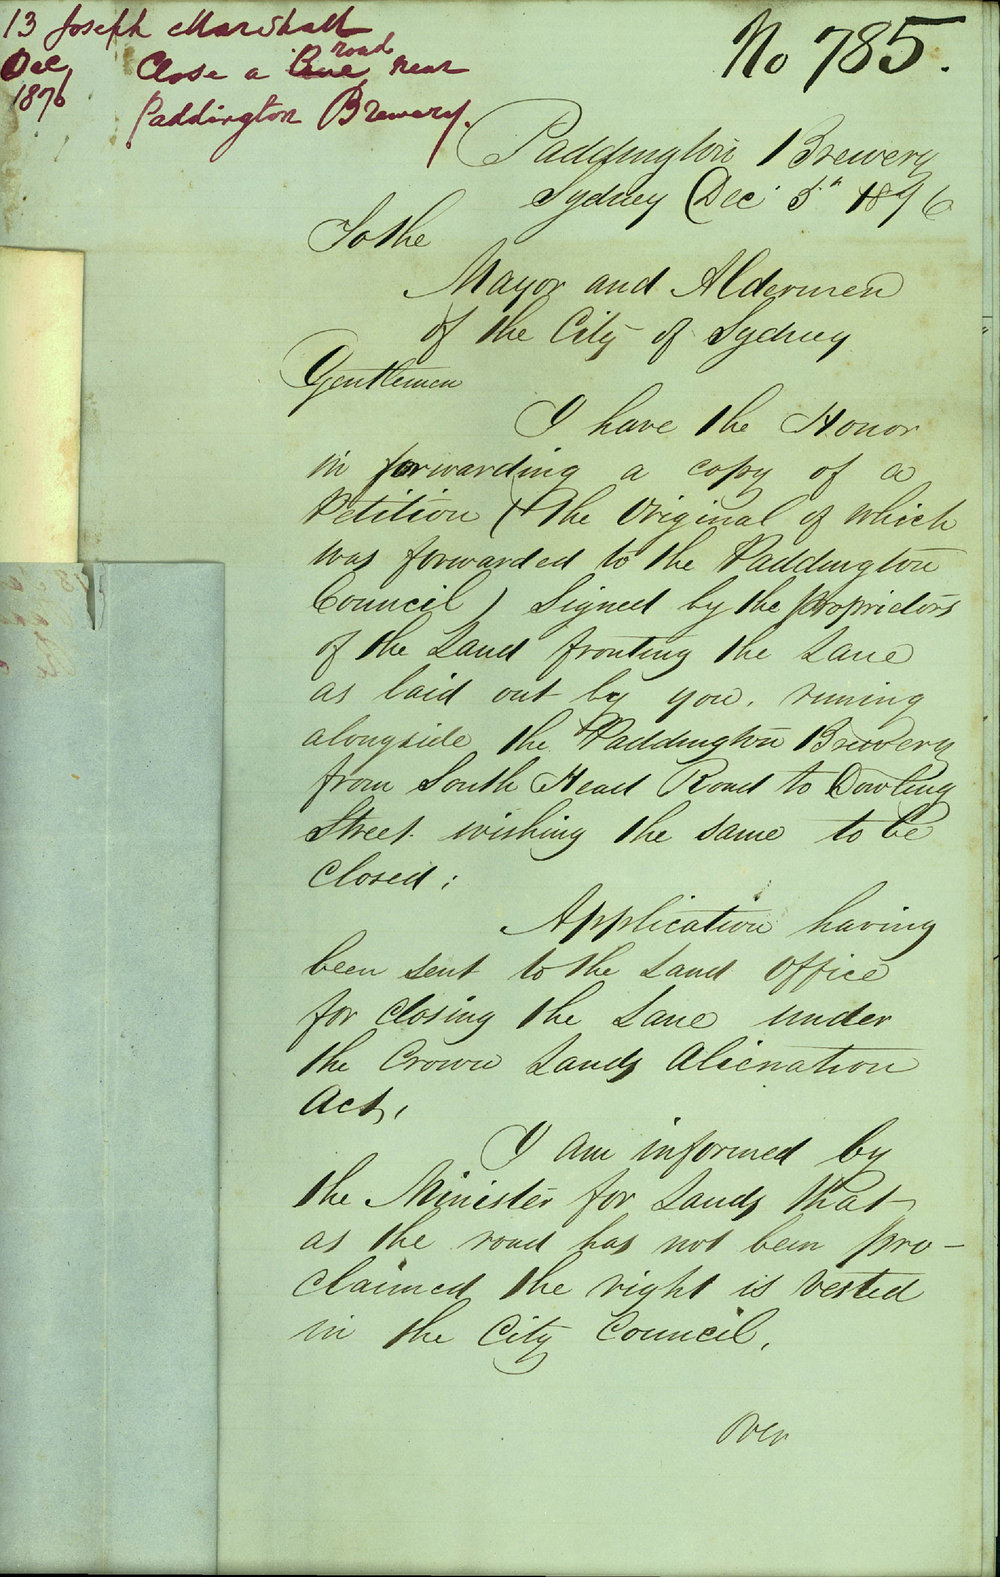 13 Joseph Marshall
Dec Close a Lane road near
1876 Paddington Brewery.
No 785.
Paddington Brewery
Sydney Dec 5th 1876
To the
Mayor and Aldermen
of the City of Sydney
Gentlemen
I have the Honor
in forwarding a copy of a
Petition (the Original of which
was forwarded to the Paddington
Council) Signed by the proprietors
of the Land fronting the Lane
as laid out by you. runing
alongside the Paddington Brewery
from South Head Road to Dowling
Street wishing the same to be
Closed:
Application having
been sent to the Land Office
for closing the Lane under
the Crown Lands Alienation
Act,
I am informed by
the Minister for Lands that
as the road has not been pro-
claimed the right is vested
in the City Council.
Over